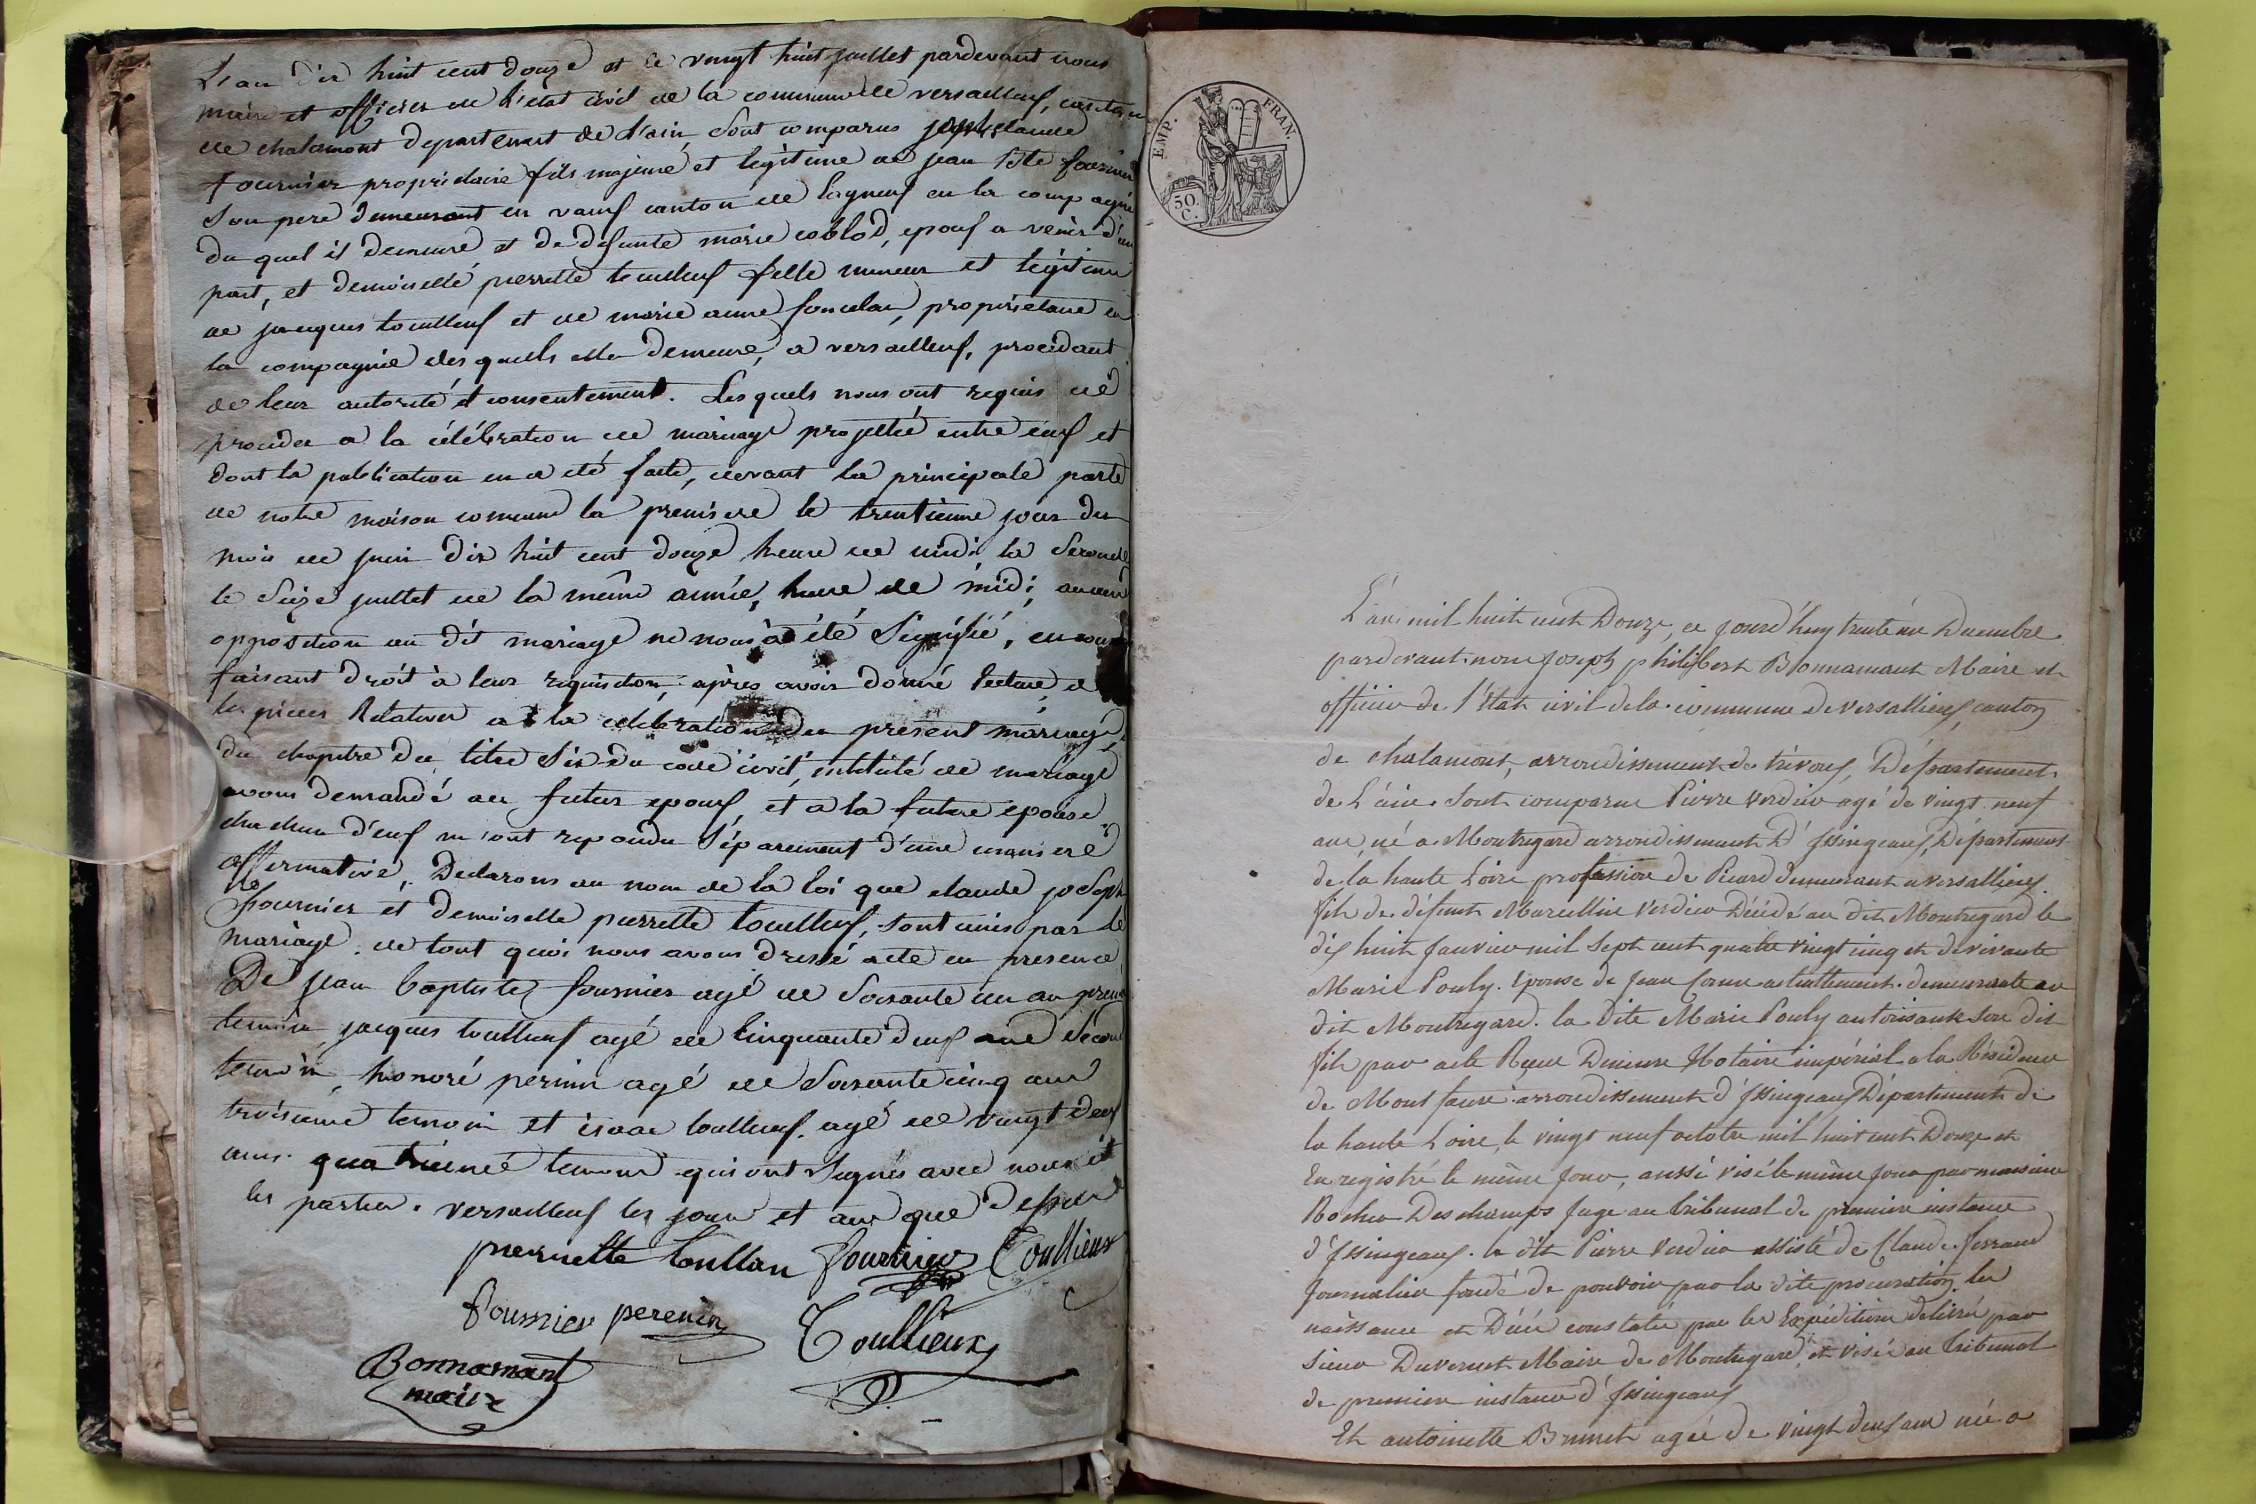 L'an dix huit cent douze et le vingt huit juillet pardevant nous
maire et officier de l'état civil de la commune de versailleux, canton
de chalamont departement de l'ain, sont comparus joseph claude
fournier propriétaire fils majeure et legitime de jean Bte fournier
son pere demeurant en vaux canton de lagneux en la compagnie
du quel il demeure et de defunte marie coblod, epoux a venir d'une
part, et demoiselle pierrette toullieux fille mineur et legitime
de jacques toullieux et de marie anne, propriétaire en
la compagnie des quells elle demeure, a versailleux, procédant
de leur autorité et consentement. Lesquels nous ont requis de
procéder a la célébration de mariage projetté entre eux et
dont la publication en a été faite, devant la principale porte
de notre maison commune la premiere le trentieme jour du
mois de juin dix huit cent douze heure de midi la seconde
le seize juillet de la même année, heure de midi; aucune
opposition au dit mariage ne nous a été signifié,
faisant droit à leur requisition, après avoir donné lecture de
les pieces Relatives a la celebration du present mariage,
du chapitre du titre six du code civil, intitulé de mariage
avons demandé au futur epoux, et a la future epouse
chachun d'eux m'ont repondu séparement d'une maniere
affermative, Declarons au nom de la loi que claude joseph
fournier et demoiselle pierrette toullieux, sont unis par le
mariage. de tout quoi nous avons dressé acte en presence
De jean baptiste fournier agé de soixante un an premier
temoin jacques toullieux agé de cinquante deux ans second
temoin, honoré perinin agé de soixante cinq ans
troisieme temoin et isaac toullieux agé de vingt deux
ans. quatrieme temoin qui ont signés avec nous et
les parties. versailleux les jour et an que dessus
pierrette toullieu fournier Toullieux
fournier perenin Toullieux
Bonnamant
maire
EMP. FRAN.
50 C.
L'an mil huit cent Douze, ce jourd'huy trente un Decembre
pardevant nous joseph philibert Bonnamant Maire et
officier de l'état civil de la commune de versallieux, canton
de chalamont, arrondissement de trévoux, Département
de L'ain. sont comparus Pierre Verdier agé de vingt neuf
ans, né a Montregard arrondissement D'issingeaux, Département
de la haute Loire profession de demeurant a versallieux.
fils de défunt Marcellin Verdier Décédé au dit Montregard le
dix huit janvier mil sept cent quatre vingt cinq et de vivante
Marie Pouly. épouse de jean actuellement demeurante au
dit Montregard. la dite Marie Pouly autorisant son dit
fils par acte Reçu Notaire impérial a la Résidence
de Montfaucon arrondissement d'issingeaux Département de
la haute Loire, le vingt neuf octobre mil huit cent Douze et
Enregistré le même jour, aussi visé le même jour par monsieur
Rocher Deschamps juge au tribunal de premiere instance
d'issingeaux. le dit Pierre Verdier assisté de Claude ferrand
journalier fondé de pouvoir par la dite procuration. les
naissance et Décé constatés par les Expéditions delivré par
sieur Duvernet Maire de Montregard, et visé au tribunal
de premiere instance d'issingeaux
Et antoinette Brunet agée de vingt deux ans née a